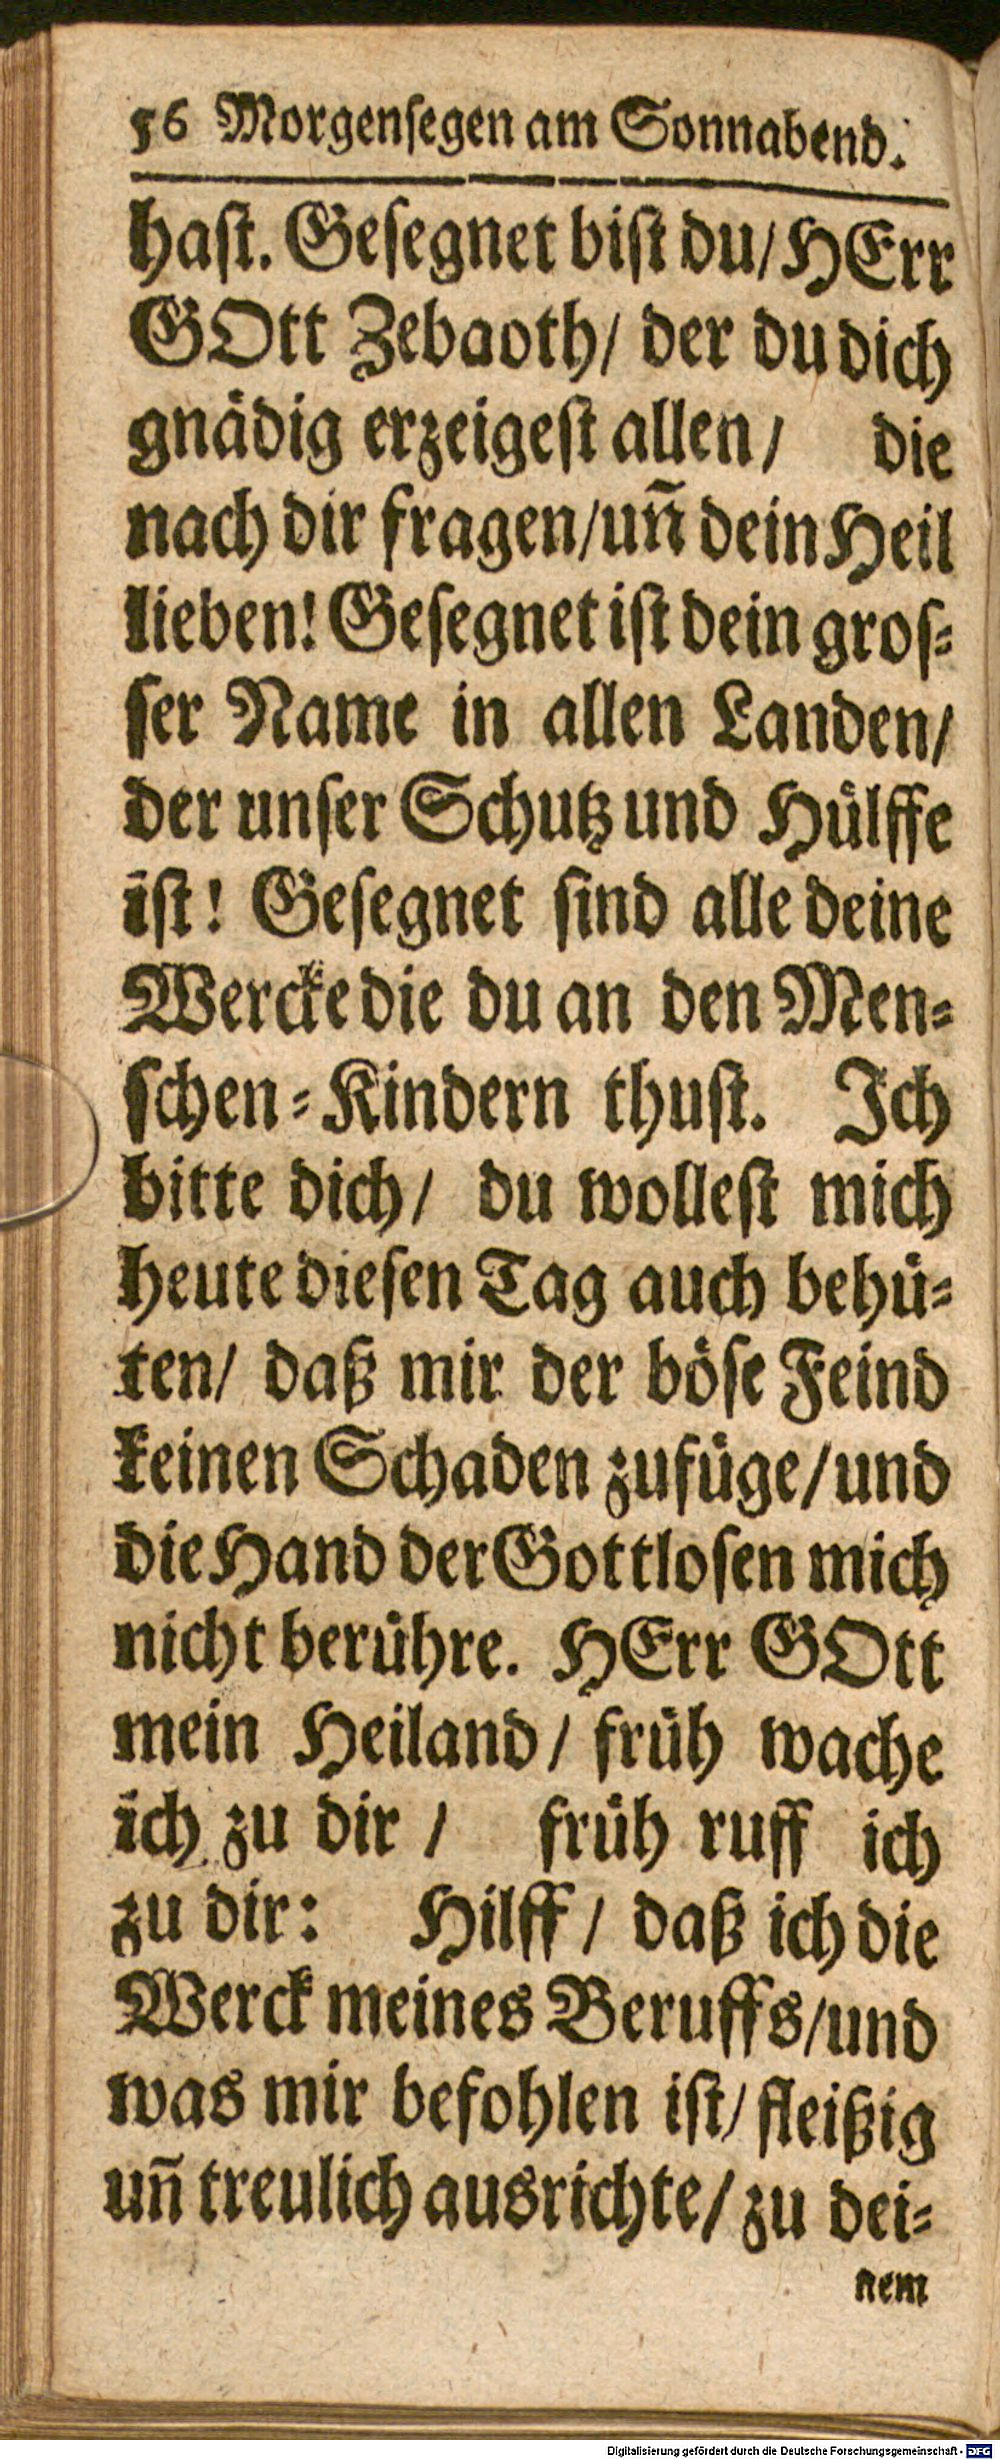 56 Morgenſegen am Sonnabend.
haſt. Geſegnet biſt du/ HErr
GOtt Zebaoth/ der du dich
gnaͤdig erzeigeſt allen/ die
nach dir fragen/ un̄ dein Heil
lieben! Geſegnet iſt dein groſ-
ſer Name in allen Landen/
der unſer Schutz und Huͤlffe
iſt! Geſegnet ſind alle deine
Wercke die du an den Men-
ſchen-Kindern thuſt. Ich
bitte dich/ du wolleſt mich
heute dieſen Tag auch behuͤ-
ten/ daß mir der boͤſe Feind
keinen Schaden zufuͤge/ und
die Hand der Gottloſen mich
nicht beruͤhre. HErr GOtt
mein Heiland/ fruͤh wache
ich zu dir/ fruͤh ruff ich
zu dir: Hilff/ daß ich die
Werck meines Beruffs/ und
was mir befohlen iſt/ fleißig
un̄ treulich ausrichte/ zu dei-
nem
Digitalisierung gefördert durch die Deutsche Forschungsgemeinschaft - DFG